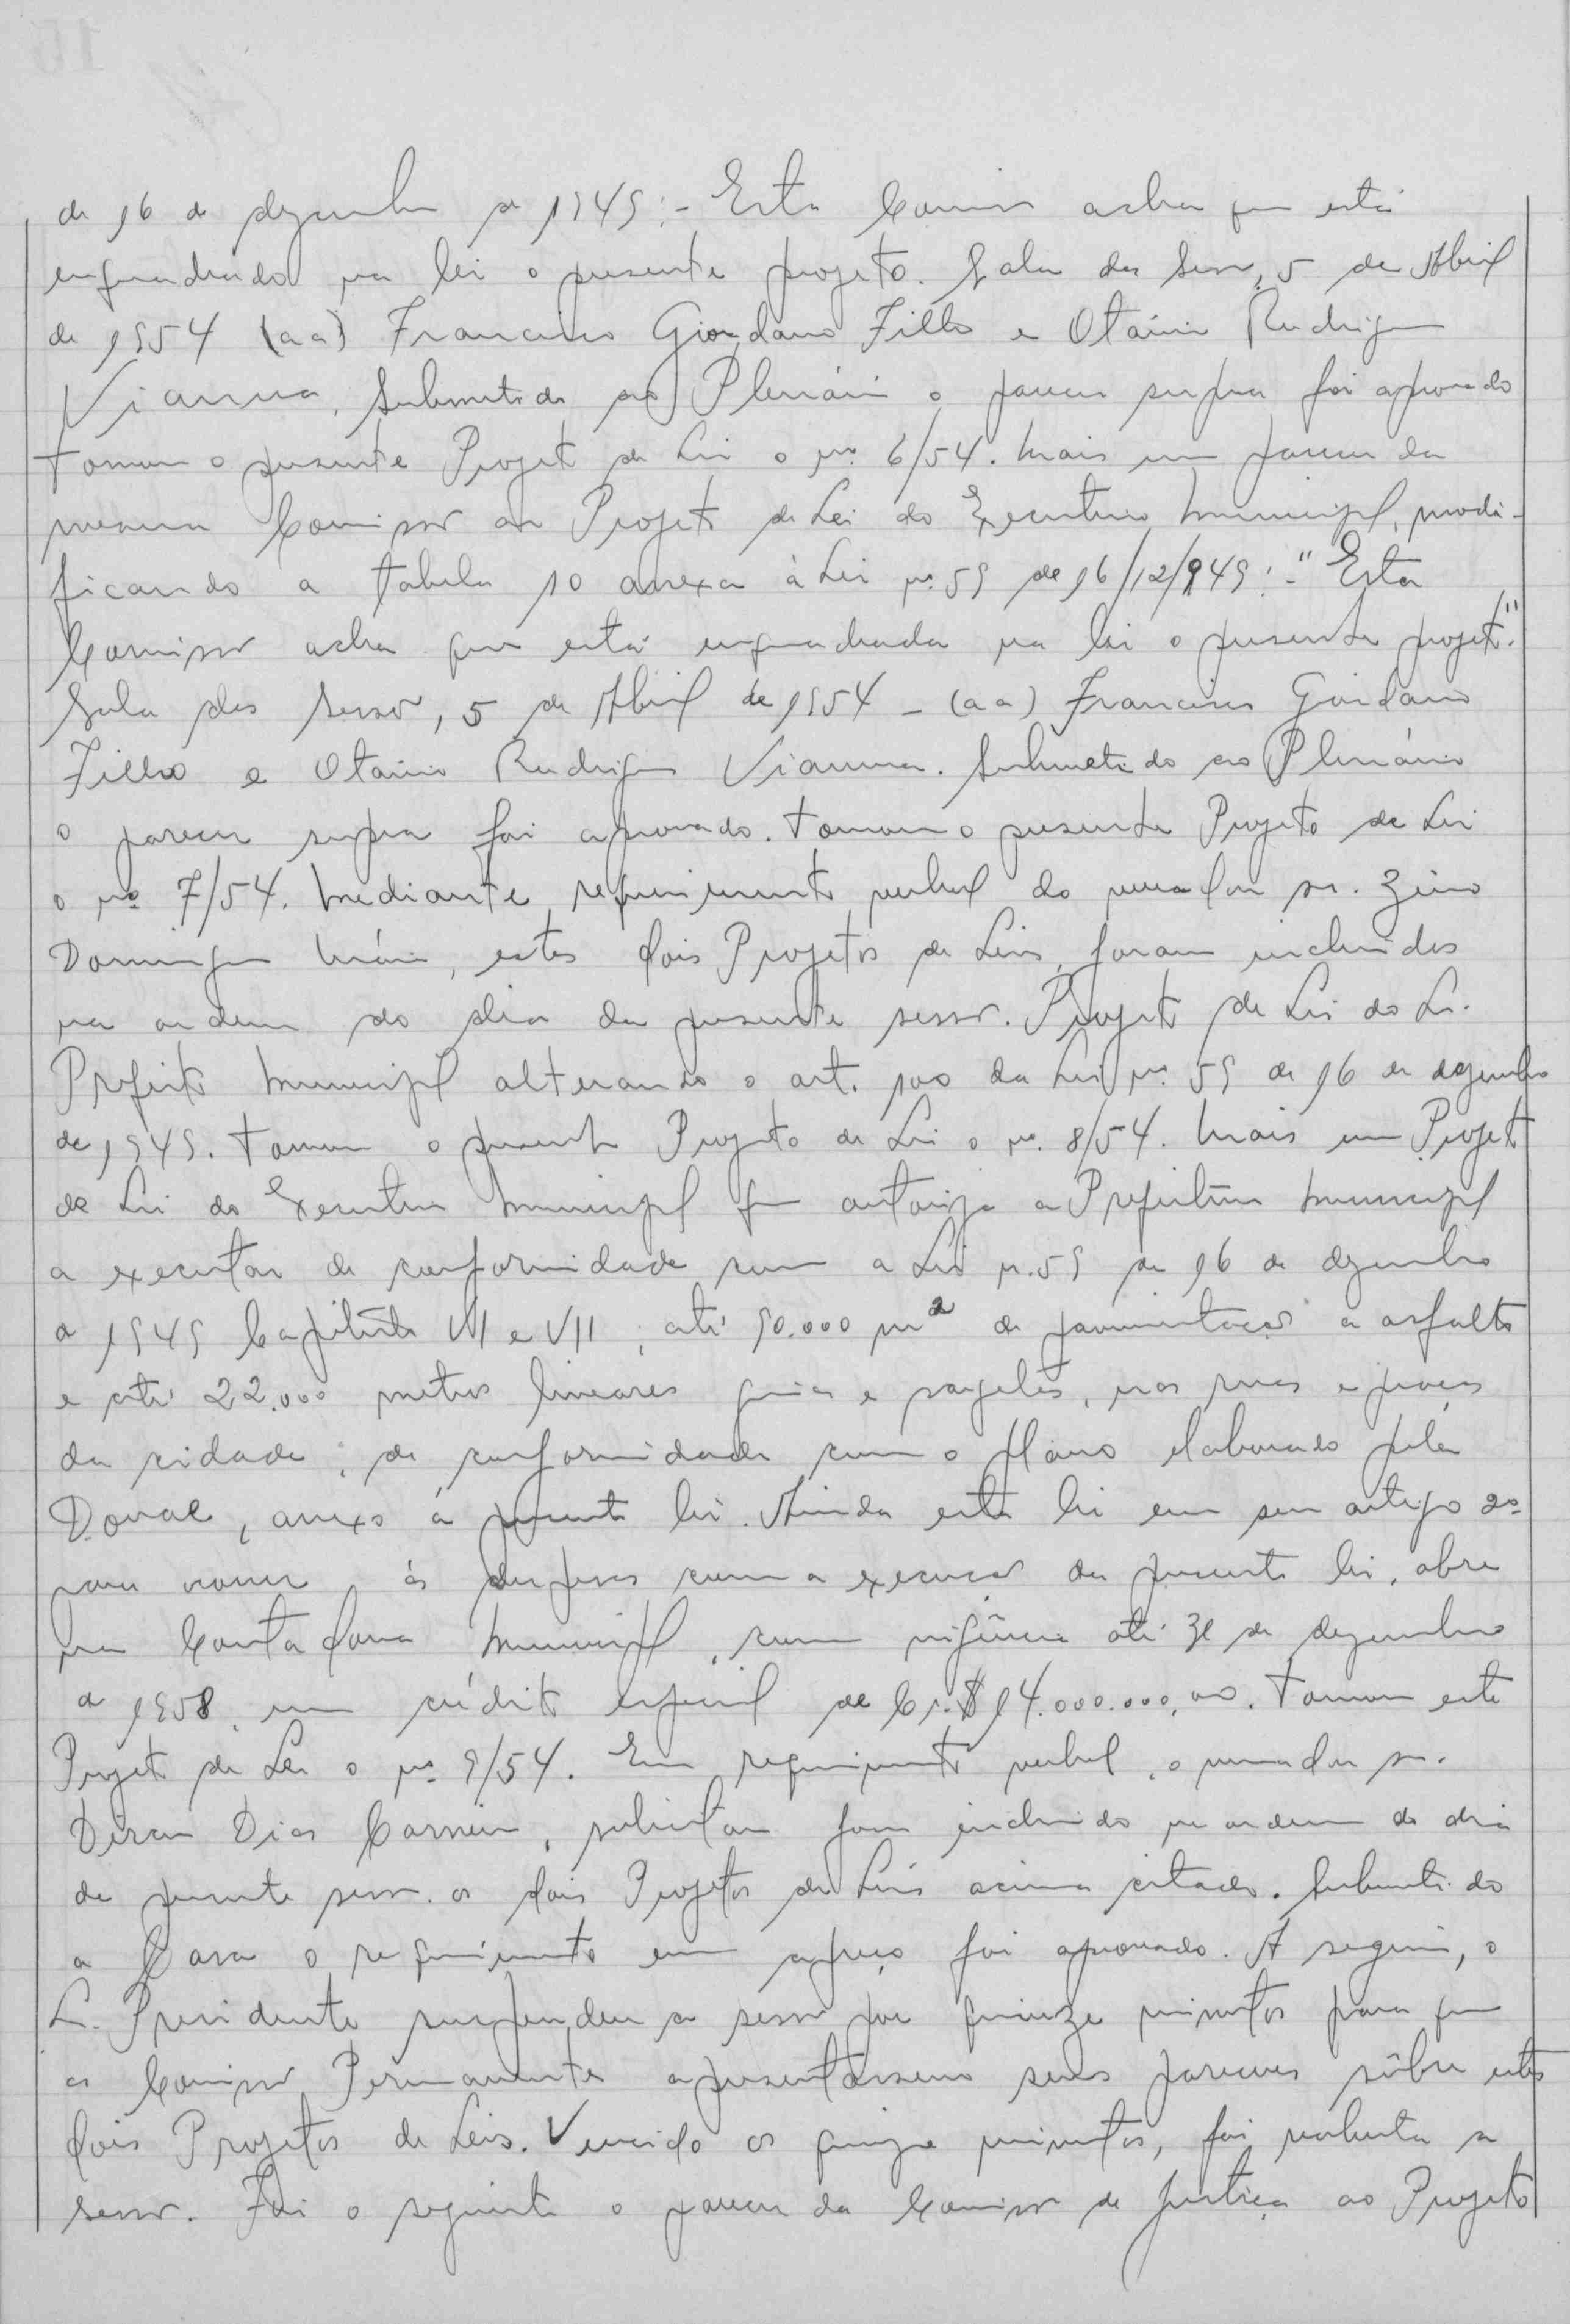 de 16 de dezembro de 1949:- Esta Comissão acha que está
enquadrado na lei o presente projeto. Sala das Sessões, 5 de Abril
de 1954 (aa) Francisco Giordano Filho e Otávio Rodrigues
Vianna. Submetido ao Plenário o parecer supra foi aprovado
Tomou o presente Projeto de Lei o nº 6/54. Mais um parecer da
mesma Comissão ao Projeto de Lei do Executivo Municipal, modi-
ficando a tabela 10 anexa à Lei nº 59 de 16/12/949:- "Esta
Comissão acha que está enquadrado na lei o presente projeto".
Sala das Sessões, 5 de Abril de 1954 - (aa) Francisco Giordano
Filho e Otávio Rodrigues Vianna. Submetido ao Plenário
o parecer supra foi aprovado. Tomou o presente Projeto de Lei
o nº 7/54. Mediante requerimento verbal do vereador sr. Zeno
Domingues, estes dois Projetos de Leis, foram incluidos
na ordem do dia da presente sessão. Projeto de Lei do Sr.
Prefeito Municipal alterando o art. 100 da Lei nº 59 de 16 de dezembro
de 1949. Tomou o presente Projeto de Lei o nº 8/54. Mais um Projeto
de Lei do Executivo Municipal que autoriza a Prefeitura Municipal
a executar de conformidade com a Lei n. 59 de 16 de dezembro
de 1949 Capítulo e VII, até 90.000 m² de pavimentação a asfalto
e até 22.000 metros lineares guias e sargetas, nas ruas e praças
da cidade, de conformidade com o plano elaborado pela
anexo á presente lei. Ainda esta lei em seu artigo 2º
para ás despesas com a execução da presente lei, abre
na Contadoria Municipal, com vigência até 31 de dezembro
de 1958, um crédito especial de Cr.$ 14.000.000,00. Tomou este
Projeto de Lei o nº 9/54. Em requerimento verbal, o vereador sr.
Dias Carneiro, solicitou fosse incluido na ordem do dia
da presente sessão os dois Projetos de Leis acima citados. Submetido
a Casa o requerimento em apreço foi aprovado. A seguir, o
S. Presidente suspendeu a sessão por quinze minutos para que
as Comissões Permanentes apresentassem seus pareceres sôbre estes
dois Projetos de Leis. Vencido os quinze minutos, foi reaberta a
sessão. Foi o seguinte o parecer da Comissão de Justiça ao Projeto